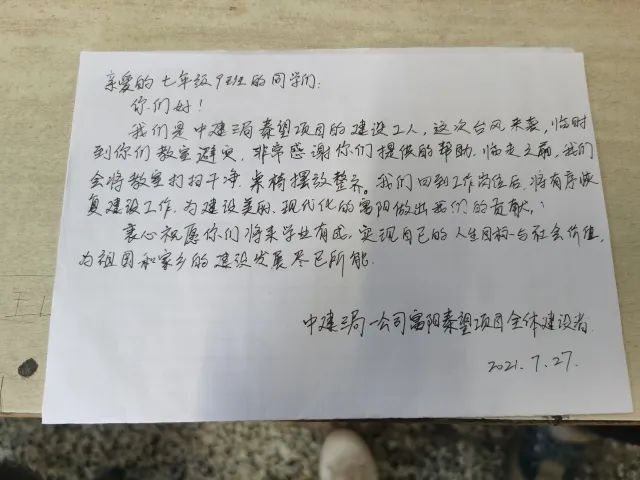 亲爱的七年级9班的同学们:
你们好!
我们是中建三局秦望项目的建设工人,这次台风来袭,临时
到你们教室避灾,非常感谢你们提供的帮助.临走之前,我们
会将教室打扫干净,桌椅摆放整齐。我们回到工作岗位后,将有序恢
复建设工作,为建设美丽、现代化的富阳做出我们的贡献。
衷心祝愿你们将来学业有成,实现自己的人生目标与社会价值,
为祖国和家乡的建设发展尽己所能.
中建三局一公司富阳秦望项目全体建设者.
2021.7.27.